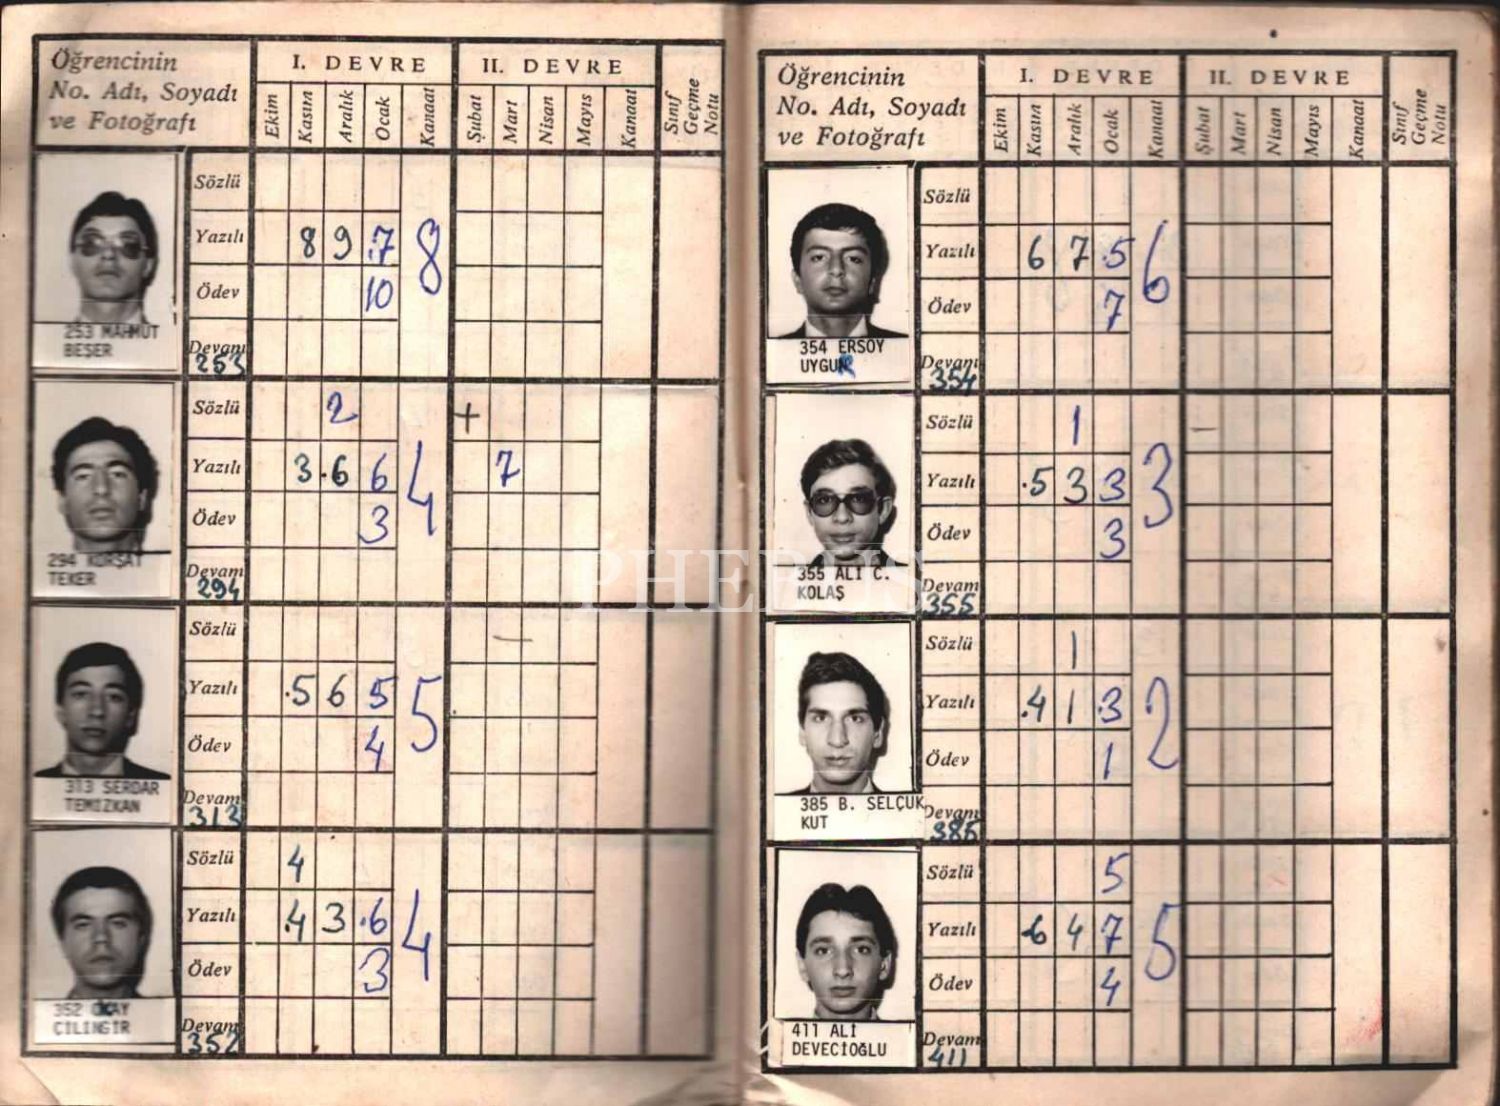 Öğrencinin
No. Adı, Soyadı
ve Fotoğrafı
I. DEVRE
II. DEVRE
Ekim Kasım Aralık Ocak Kanaat Şubat Mart Nisan Mayıs Kanaat Sınıf Geçme Notu
Sözlü
Yazılı 8 9 .7 8
Ödev 10
Devamı
253
253 MAHMUT
BEŞER
Sözlü 2 +
Yazılı 3 .6 6 4 7
Ödev 3
Devam
294
294 KÜRŞAT
TEKER
Sözlü —
Yazılı .5 6 5 5
Ödev 4
Devam
313
313 SERDAR
TEMİZKAN
Sözlü 4
Yazılı .4 3 .6 4
Ödev 3
Devam
352
352 OKAY
ÇİLİNGİR
Öğrencinin
No. Adı, Soyadı
ve Fotoğrafı
I. DEVRE
II. DEVRE
Ekim Kasım Aralık Ocak Kanaat Şubat Mart Nisan Mayıs Kanaat Sınıf Geçme Notu
Sözlü
Yazılı 6 7 .5 6
Ödev 7
Devamı
354
354 ERSOY
UYGUR
Sözlü 1 —
Yazılı .5 3 3 3
Ödev 3
Devam
355
355 ALİ C.
KOLAŞ
Sözlü 1
Yazılı .4 1 .3 2
Ödev 1
Devamı
385
385 B. SELÇUK
KUT
Sözlü 5
Yazılı .6 4 7 5
Ödev 4
Devam
411
411 ALİ
DEVECİOĞLU
PHEBUS